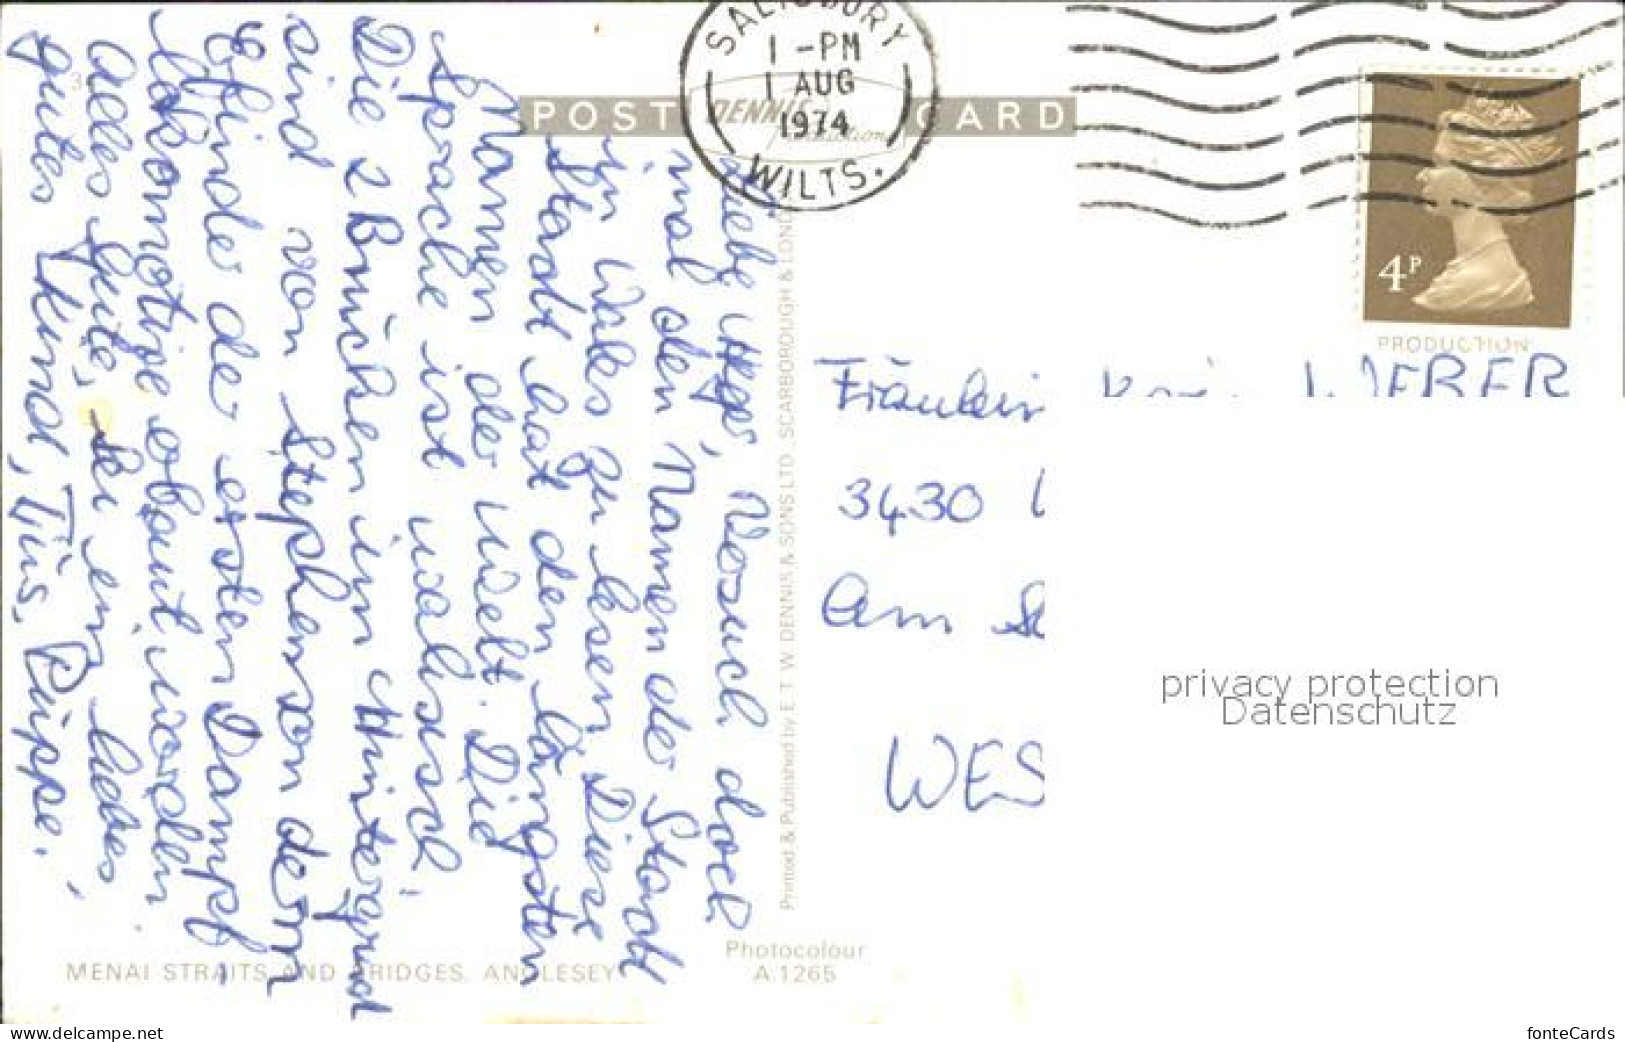 POST CARD
DENNIS
SALISBURY
1 - PM
1 AUG
1974
WILTS.
4P
PRODUCTION
Liebe, Versuch doch
mal den Namen der Stadt
in Wales zu lesen Diese
Stadt hat den längsten
Namen der Welt. Die
Sprache ist walisisch,
Die 2 Brücken im Hintergrund
sind von Stephenson dem
Erfinder der ersten Dampf
lokomotive erbaut worden.
Alles Gute, sei ein liebes
gutes Kind,
Printed & Published by E. T. W. DENNIS & SONS LTD. SCARBOROUGH & LOND
Fräulein WEBER
3430
Am
WES
privacy protection
Datenschutz
Photocolour
A.1265
MENAI STRAITS AND BRIDGES, ANGLESEY
www.delcampe.net
fonteCards